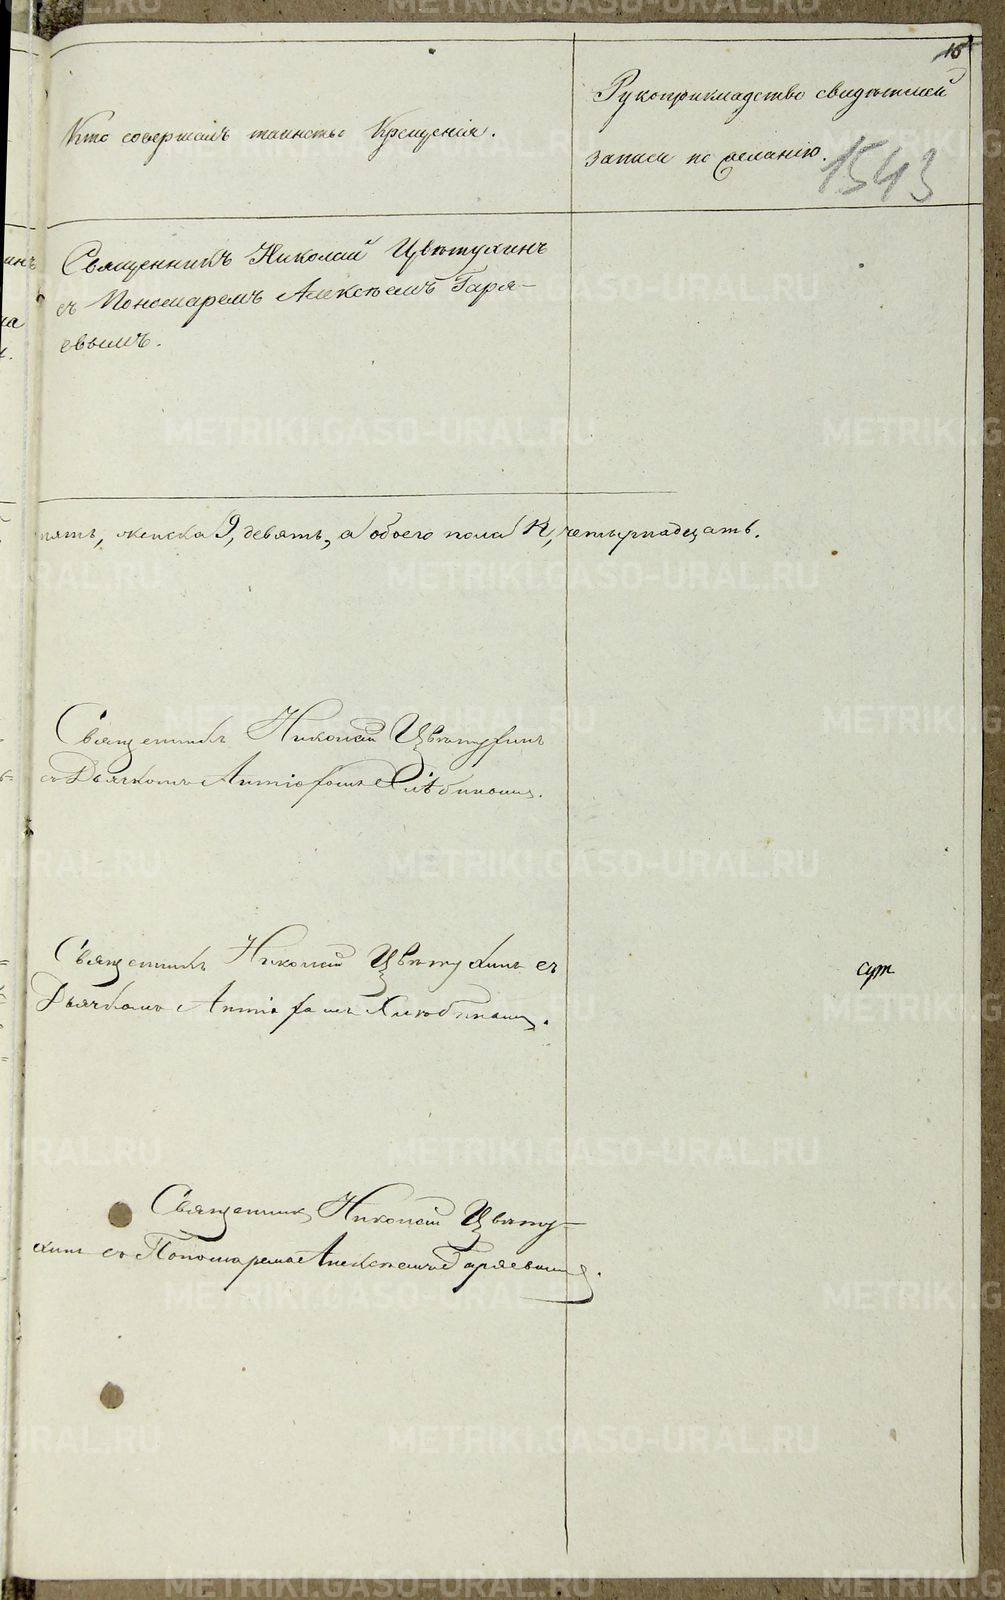 15
Кто совершалъ таинство Крещенія.
Рукоприкладство свидѣтелей
записи по желанію.
1543
Священникъ Николай Цвѣтухинъ
съ Пономаремъ Алексѣемъ Гаря-
евымъ.
пять, женска 9, девять, а обоего пола 14, четырнадцать.
Священникъ Николай Цвѣтухинъ
съ Дьячкомъ Антіофомъ Хлѣбинымъ.
Священникъ Николай Цвѣтухинъ съ
Дьячкомъ
сут
Священникъ Николай Цвѣту-
хинъ съ Пономаремъ Алексѣемъ Гаряевымъ.
METRIKI.GASO-URAL.RU